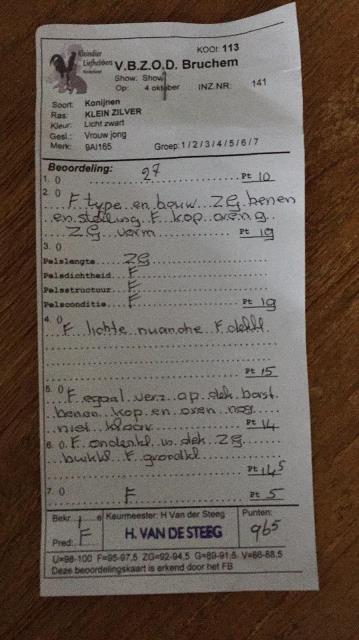 Kleindier
Liefhebbers
Nederland
KOOI: 113
V.B.Z.O.D. Bruchem
Show: Show
Op: 4 oktober INZ.NR: 141
Soort: Konijnen
Ras: KLEIN ZILVER
Kleur: Licht zwart
Gesl.: Vrouw jong
Merk: 9AI165 Groep: 1 / 2 / 3 / 4 / 5 / 6 / 7
Beoordeling:
1. 0 27 Pt 10
2. 0 F type en bouw ZG benen
en stelling F kop oren
ZG vorm Pt 19
3. 0
Pelslengte ZG
Pelsdichtheid F
Pelsstructuur F
Pelsconditie F Pt 19
4. 0
F lichte nuanche F dekkl
Pt 15
5. 0
F egaal verz op dek borst
benen kop en oren nog
niet klaar Pt 14
6. 0 F onderkl v dek ZG
buikkl F grondkl
Pt 14,5
7. 0 F Pt 5
Bekr. 1 e Keurmeester: H Van der Steeg Punten:
Pred: F H. VAN DE STEEG 965
U=98-100 F=95-97,5 ZG=92-94,5 G=89-91,5 V=86-88,5
Deze beoordelingskaart is erkend door het FB